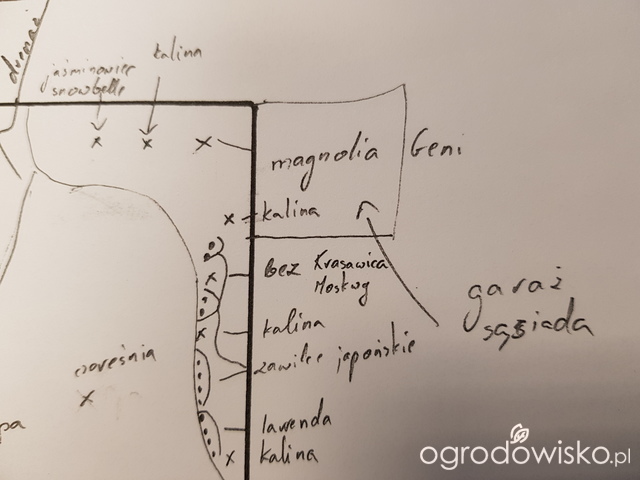 kalina
jaśminowiec
snowbelle
magnolia Geni
kalina
bez Krasawica
Moskwy
garaż
sąsiada
kalina
zawilce japońskie
czereśnia
lawenda
kalina
pa
ogrodowisko.pl